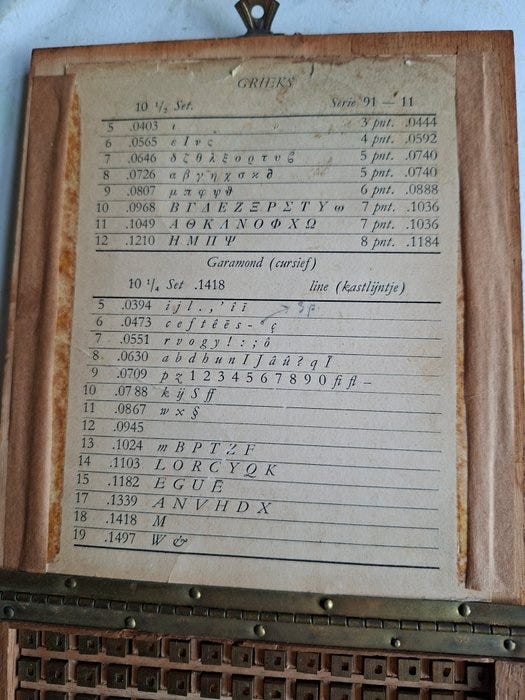 GRIEKS
10 1/2 Set. Serie 91 — 11
5 .0403 ι 3 pnt. .0444
6 .0565 ε Ι ν ς 4 pnt. .0592
7 .0646 δ ζ θ λ ξ ο ρ τ υ 5 pnt. .0740
8 .0726 α β γ η χ σ κ 5 pnt. .0740
9 .0807 μ π φ ψ ϑ 6 pnt. .0888
10 .0968 Β Γ Δ Ε Ζ Ξ Ρ Σ Τ Υ ω 7 pnt. .1036
11 .1049 Α Θ Κ Λ Ν Ο Φ Χ Ω 7 pnt. .1036
12 .1210 Η Μ Π Ψ 8 pnt. .1184
Garamond (cursief)
10 1/4 Set .1418 line (kastlijntje)
5 .0394 i j l . , ' î ï
6 .0473 c e s t ê ë s - ç
7 .0551 r v o g y ! : ; ô
8 .0630 a b d h u n I J â û ? q Ï
9 .0709 p z 1 2 3 4 5 6 7 8 9 0 fi fl –
10 .0788 k ÿ S ff
11 .0867 w x §
12 .0945
13 .1024 m B P T Z F
14 .1103 L O R C Y Q K
15 .1182 E G U Ë
17 .1339 A N V H D X
18 .1418 M
19 .1497 W &